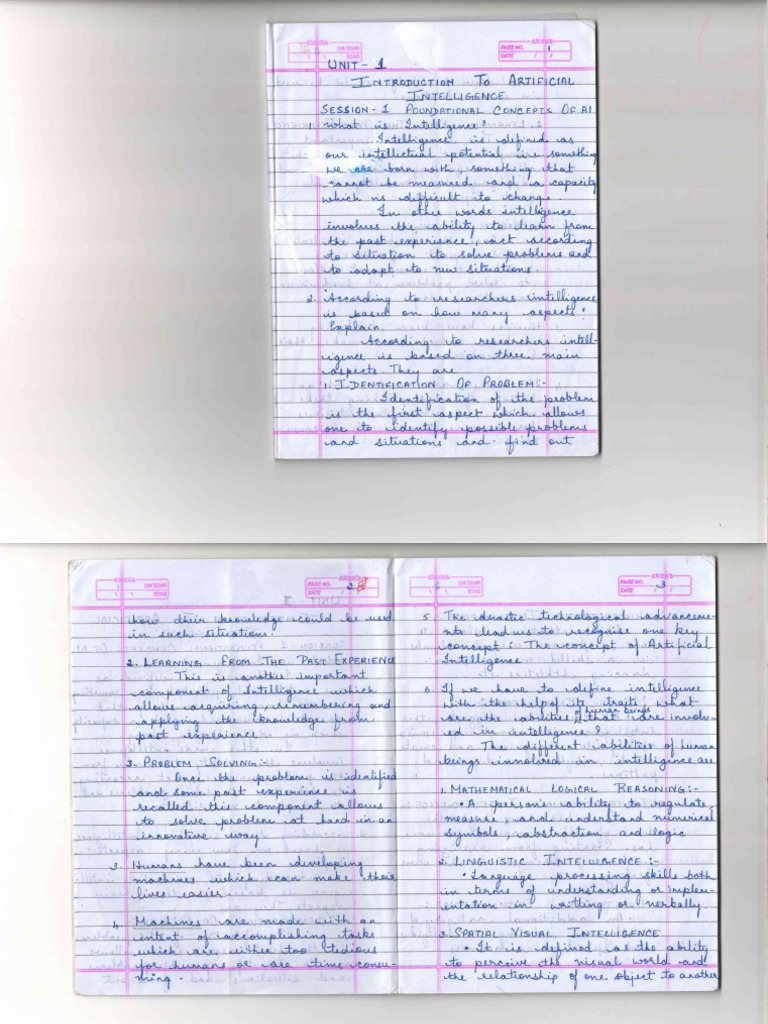 PAGE NO. 1
DATE / /
UNIT - 1
INTRODUCTION TO ARTIFICIAL
INTELLIGENCE
SESSION - 1 FOUNDATIONAL CONCEPTS OF AI
1. What is Intelligence?
Intelligence is defined as
our intellectual potential i.e. something
we are born with, something that
cannot be measured and a capacity
which is difficult to change.
In other words intelligence
involves the ability to learn from
the past experience, act according
to situation to solve problems and
to adapt to new situations.
2. According to researchers intelligence
is based on how many aspects?
Explain.
According to researchers intell-
igence is based on three main
aspects. They are
1. IDENTIFICATION OF PROBLEM:-
Identification of the problem
is the first aspect which allows
one to identify possible problems
and situations and find out
PAGE NO. 2
DATE / /
how their knowledge could be used
in such situations.
2. LEARNING FROM THE PAST EXPERIENCE
This is another important
component of Intelligence which
allows acquiring, remembering and
applying the knowledge from
past experience.
3. PROBLEM SOLVING:-
Once the problem is identified
and some past experience is
recalled this component allows
to solve problems at hand in an
innovative way.
3. Humans have been developing
machines which can make their
lives easier.
4. Machines are made with an
intent of accomplishing tasks
which are either too tedious
for humans or are time consu-
ming.
PAGE NO. 3
DATE / /
5. The drastic technological advanceme-
nts lead us to recognise one key
concept: The concept of Artificial
Intelligence
6. If we have to define intelligence
with the help of its traits, what
are the abilities of human beings that are involv-
ed in intelligence?
The different abilities of human
beings involved in intelligence are
1. MATHEMATICAL LOGICAL REASONING:-
• A person's ability to regulate,
measure, and understand numerical
symbols, abstraction and logic
2. LINGUISTIC INTELLIGENCE:-
• Language processing skills both
in terms of understanding or implem-
entation in writting or verbally.
3. SPATIAL VISUAL INTELLIGENCE
• It is defined as the ability
to perceive the visual world and
the relationship of one object to another